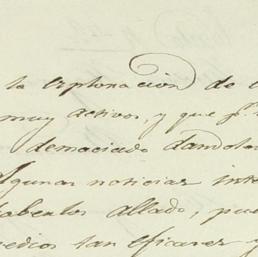 la exploracion de
muy activos, y que p.r
demaciado dandole
algunas noticias inte
saberlos allado, pue
medios tan eficases y